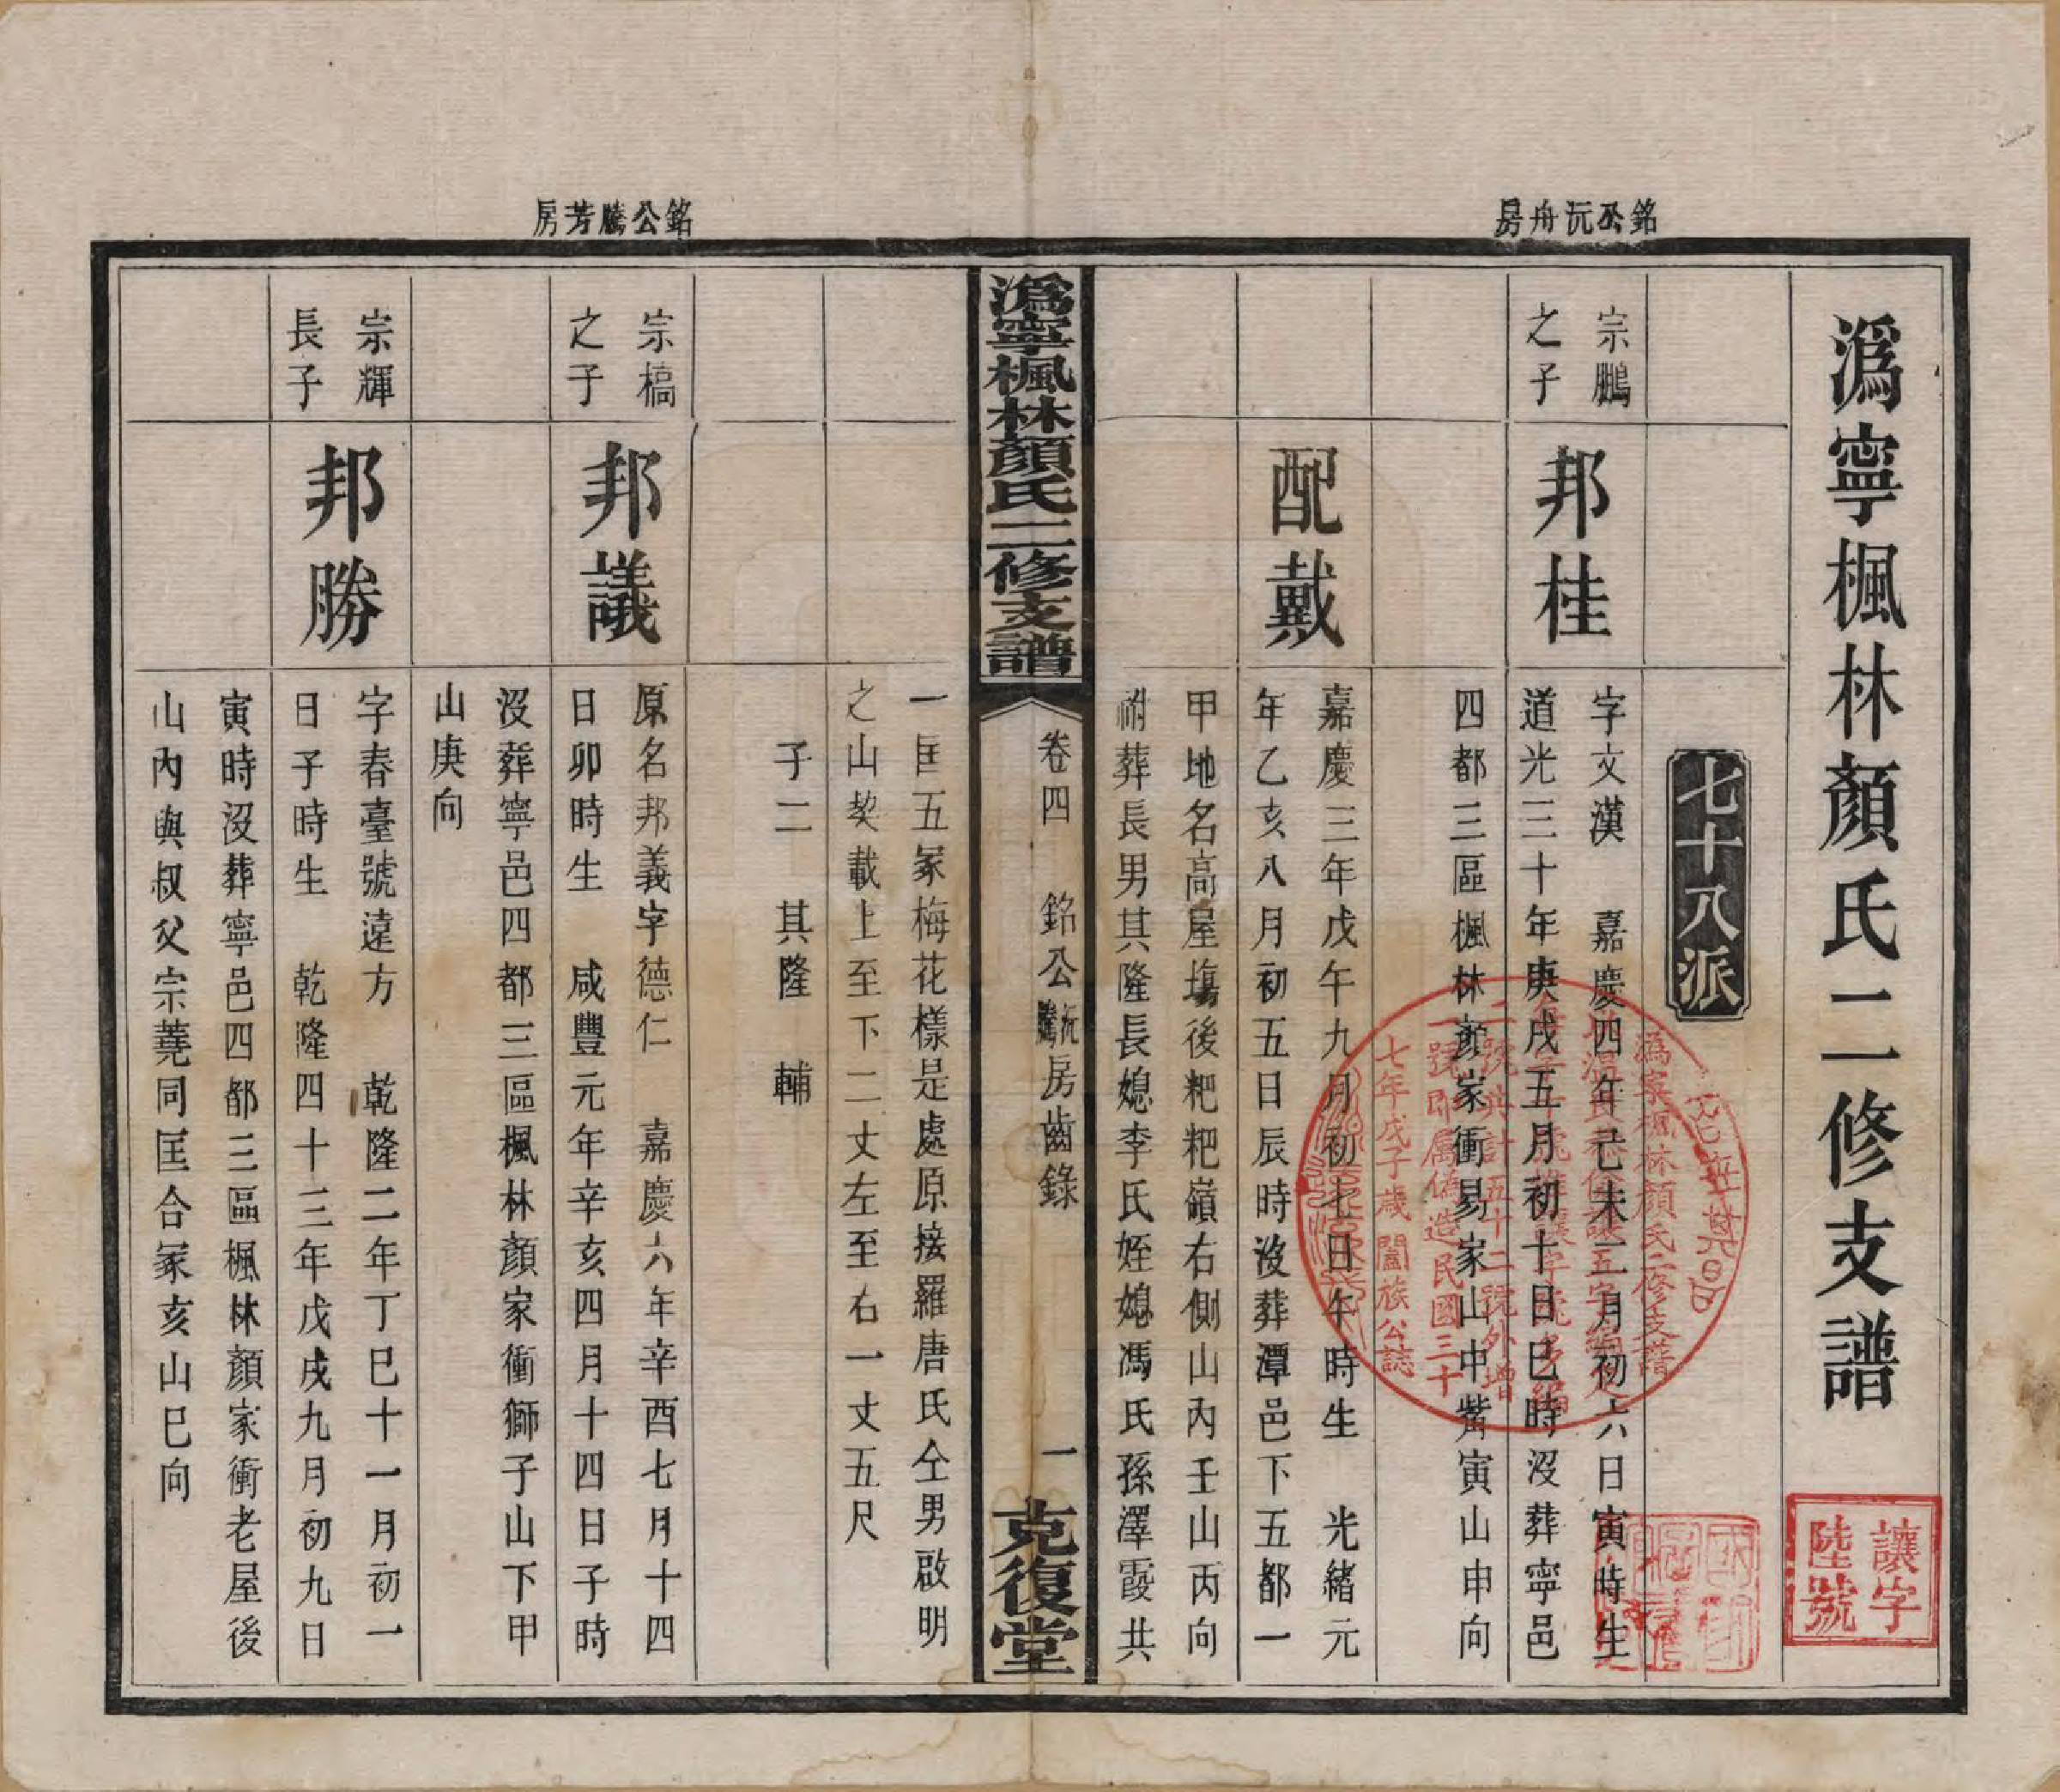 銘公沅舟房
溈寧楓林顏氏二修支譜
七十八派
宗鵬之子
邦桂
字文漢　嘉慶四年己未二月初六日寅時生
道光三十年庚戌五月初十日巳時沒葬寧邑
四都三區楓林顏家衝易家山中觜寅山申向
配戴
嘉慶三年戊午九月初七日午時生　光緒元
年乙亥八月初五日辰時沒葬潭邑下五都一
甲地名高屋塲後粑粑嶺右側山內壬山丙向
祔葬長男其隆長媳李氏姪媳馮氏孫澤霞共
溈寧楓林顏氏二修支譜
卷四　銘公沅騰房齒錄
一
克復堂
銘公騰芳房
一匡五冢梅花樣是處原接羅唐氏仝男啟明
之山契載上至下二丈左至右一丈五尺
子二　其隆　輔
宗槁之子
邦議
原名邦義字德仁　嘉慶六年辛酉七月十四
日卯時生　咸豐元年辛亥四月十四日子時
沒葬寧邑四都三區楓林顏家衝獅子山下甲
山庚向
宗輝長子
邦勝
字春臺號遠方　乾隆二年丁巳十一月初一
日子時生　乾隆四十三年戊戌九月初九日
寅時沒葬寧邑四都三區楓林顏家衝老屋後
山內與叔父宗蕘同匡合冢亥山巳向
讓字
陸號
溈寧楓林顏氏二修支譜
號共計五十二號外增
一號即屬偽造民國三十
七年戊子歲闔族公誌